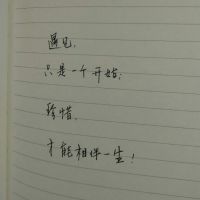 遇见，
只是一个开始；
珍惜，
才能相伴一生！